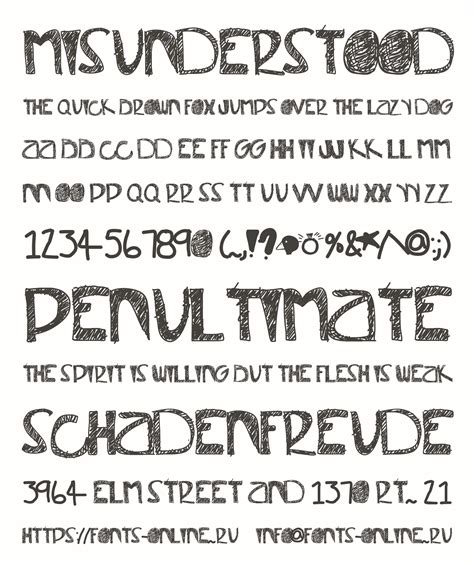 MISUNDERSTOOD
THE QUICK BROWN FOX JUMPS OVER THE LAZY DOG
aa BB CC DD EE FF GG HH II JJ KK LL MM
NN OO PP QQ RR SS TT UU VV WW XX YY ZZ
1234-567890 (~,!? %&*/\@:;)
PENULTIMaTE
THE SPIRIT IS WILLING BUT THE FLESH IS WEAK
SCHaDENFREUDE
3964 ELM STREET aND 1370 RT. 21
HTTPS://FONTS-ONLINE.RU INFO@FONTS-ONLINE.RU